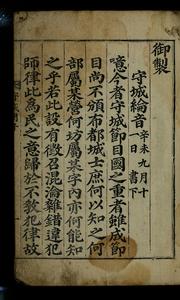 御製
守城綸音 辛未九月十
一日書下
噫今者守城節目國之重者雖成節
目尚不頒布都城士庶何以知之何
部屬某營何坊屬某字內亦何能知
之乎若此設有徵召混淆雜錯違犯
師律此為民之意歸於不教犯律故